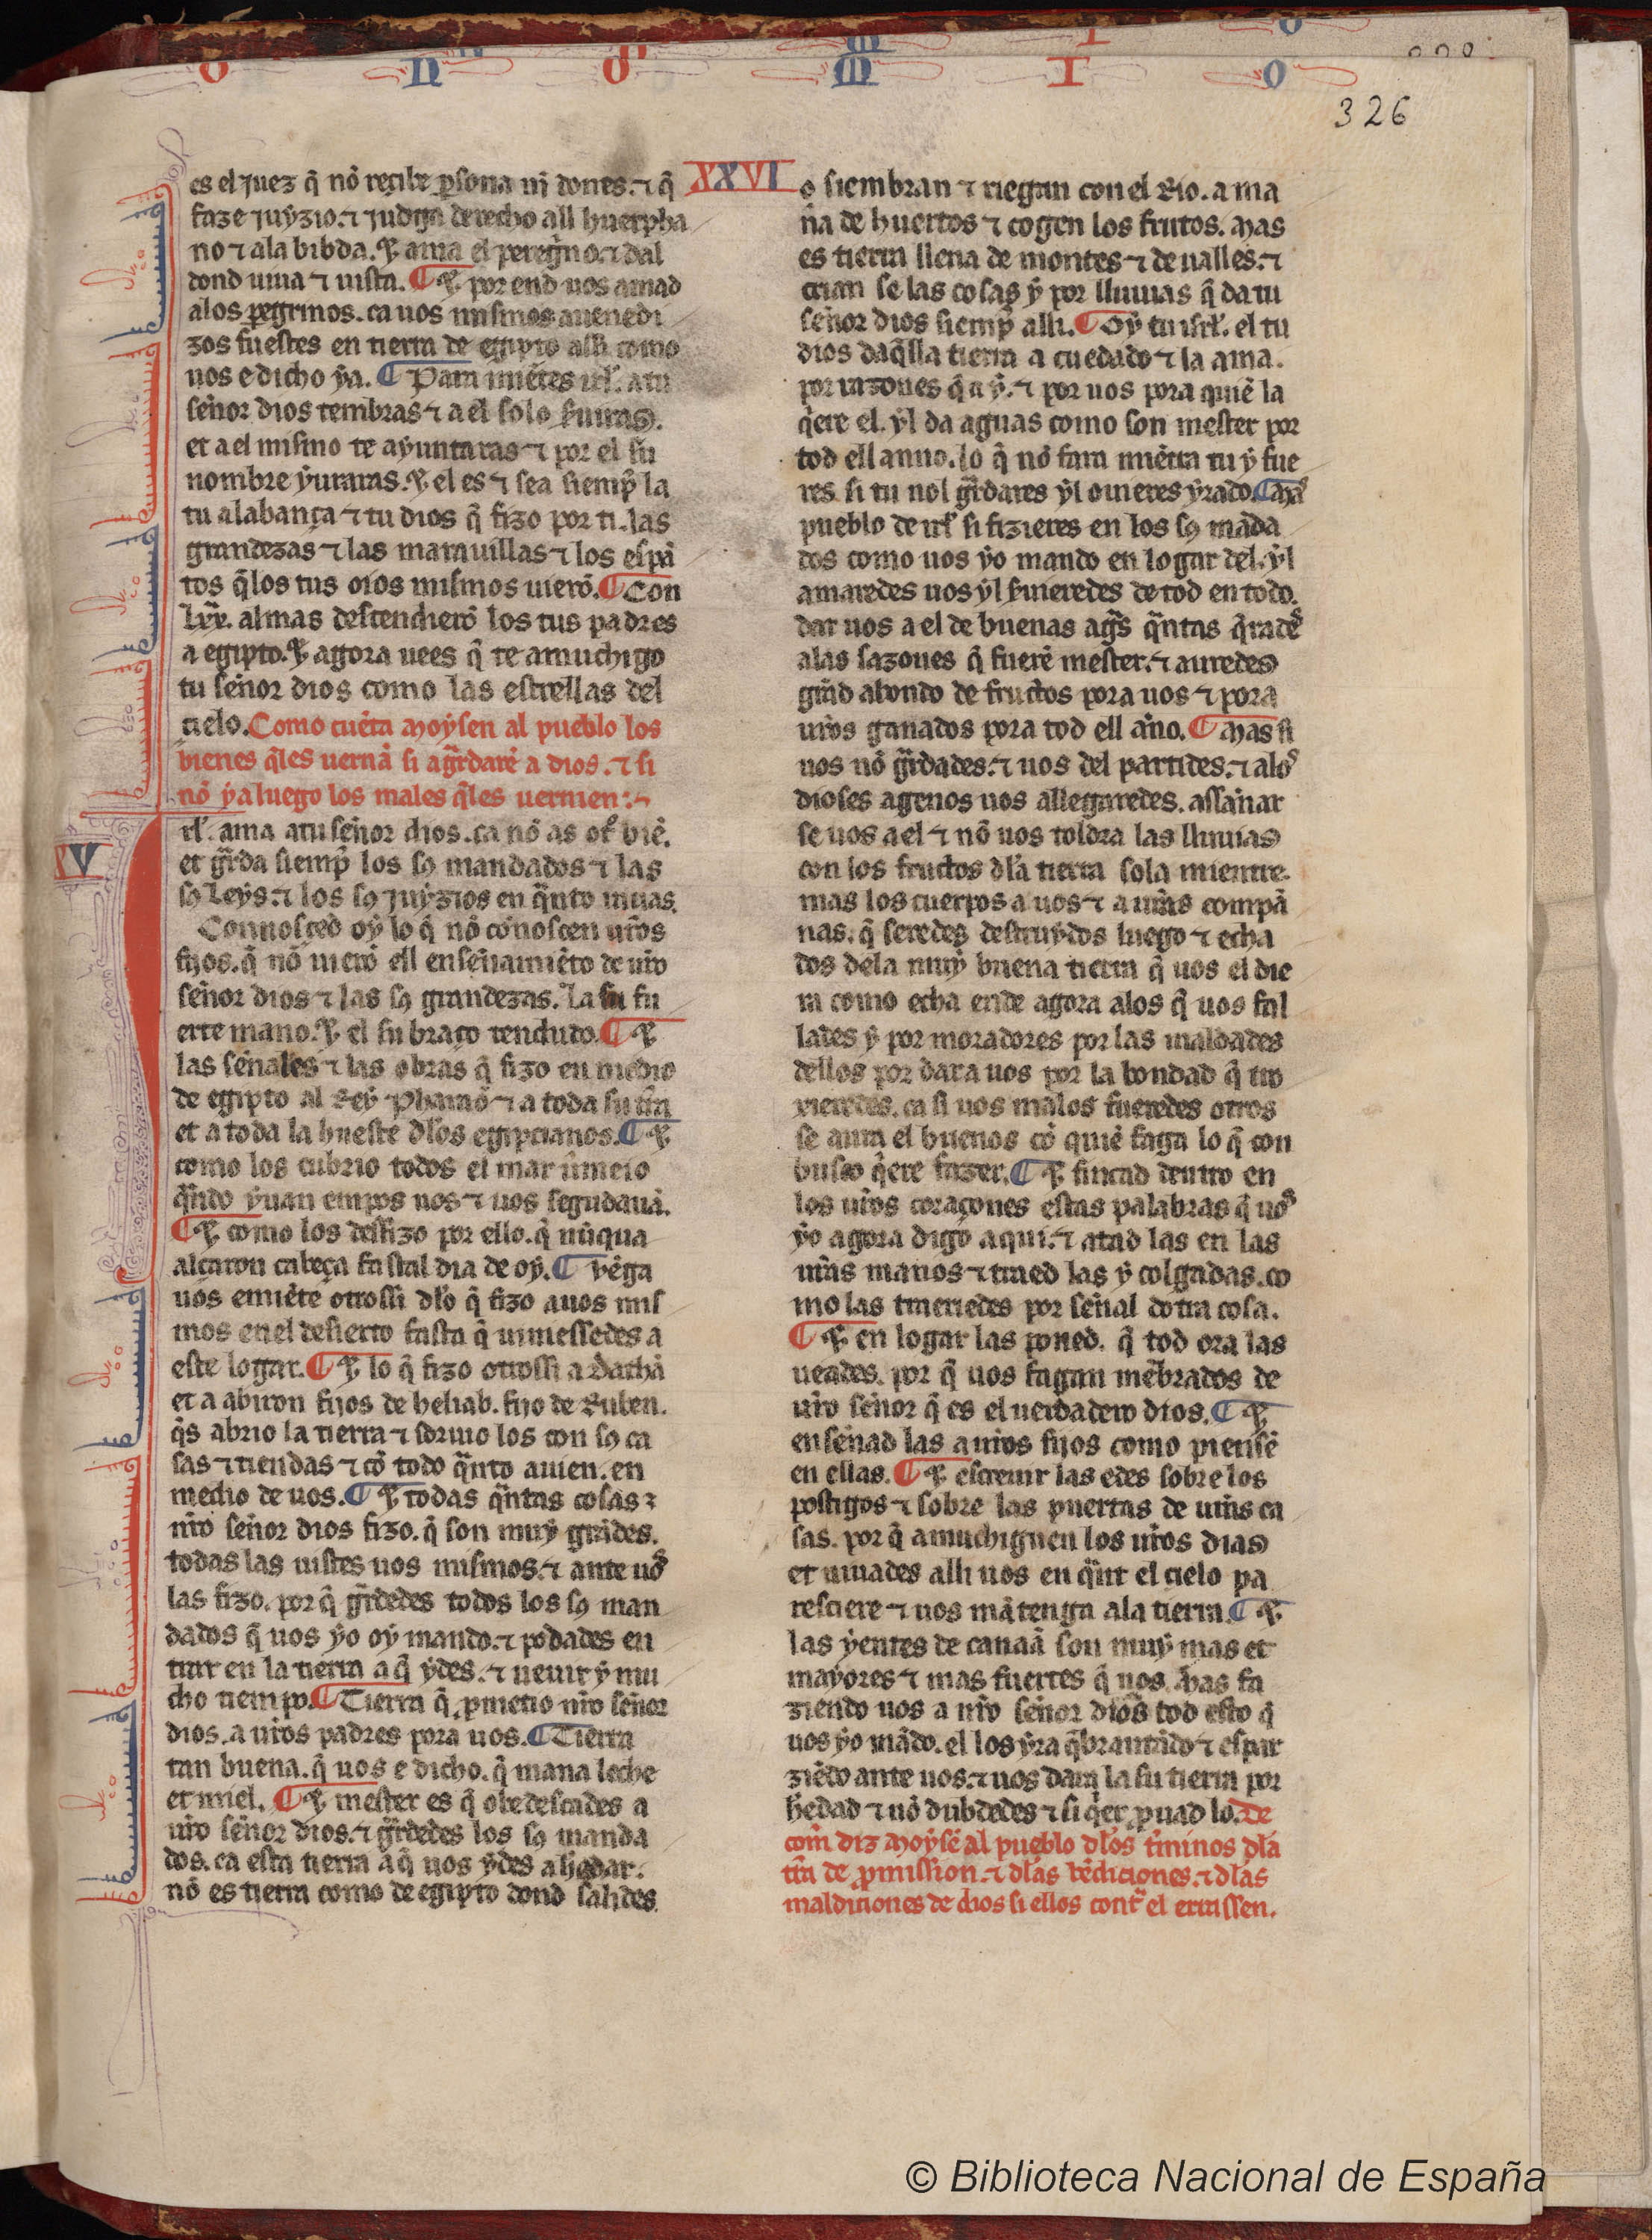 O N O M I O
326
es el juez q̃ nõ reçibe ꝑsona nj dones. ⁊ q̃
faze juyzio. ⁊ judga derecho all huerpha
no ⁊ ala bibda. ⁊ ama el peregⁱno. ⁊ dal
dond uiua ⁊ uista. ¶ ⁊ por end uos amad
alos ꝑegrinos. ca uos mismos auenedi
zos fuestes en tierra de egipto alli como
uos e dicho ya. ¶ Para miẽtes isrł. a tu
señor dios tembras ⁊ a el solo siruras.
et a el mismo te ayuntaras ⁊ por el su
nombre yuraras. ⁊ el es ⁊ sea siemp̃ la
tu alabança ⁊ tu dios q̃ fizo por ti. las
grandezas ⁊ las marauillas ⁊ los espã
tos q̃ los tus oios mismos uierõ. ¶ Con
Lxx. almas descendierõ los tus padres
a egipto. ⁊ agora uees q̃ te amuchigo
tu señor dios como las estrellas del
cielo. Como cuẽta moysen al pueblo los
bienes q̃les uernã si agr̃daré a dios. ⁊ si
nõ ya luego los males q̃les uernien:~
XXVI
XV
rł. ama atu señor dios. ca nõ as otr̃ biẽ.
et gr̃da siemp̃ los sꝯ mandados ⁊ las
sꝯ Leys. ⁊ los sꝯ juyzios en q̃nto uiuas.
Connosced oy lo q̃ nõ cõnoscen ur̃os
fijos. q̃ nõ uierõ ell enseñamiẽto de ur̃o
señor dios ⁊ las sꝯ grandezas. ⁊ la su fu
erte mano. ⁊ el su braço tendudo. ¶ ⁊
las señales ⁊ las obras q̃ fizo en medio
de egipto al Rey Pharaõ ⁊ a toda su tr̃ra
et a toda la hueste dłos egipcianos. ¶ ⁊
como los cubrio todos el mar uermeio
q̃ndo yuan empos uos ⁊ uos segudauã.
¶ ⁊ como los desfizo por ello. q̃ nũqua
alçaron cabeça fastal dia de oy. ¶ Vẽga
uos emiẽte otrossi dło q̃ fizo auos mis
mos en el desierto fasta q̃ uiniessedes a
este logar. ¶ ⁊ lo q̃ fizo otrossi a dathã
et a abiron fijos de heliab. fijo de Ruben.
q̃s abrio la tierra ⁊ soruio los con sꝯ ca
sas ⁊ tiendas ⁊ cõ todo q̃nto auien. en
medio de uos. ¶ ⁊ todas q̃ntas cosas
nr̃o señor dios fizo. q̃ son muy grãdes.
todas las uistes uos mismos. ⁊ ante uos
las fizo. por q̃ gr̃dedes todos los sꝯ man
dados q̃ uos yo oy mando. ⁊ podades en
trar en la tierra a q̃ ydes. ⁊ beuir y mu
cho tiempo. ¶ Tierra q̃ ꝓmetio nr̃o señor
dios. a ur̃os padres pora uos. ¶ Tierra
tan buena. q̃ uos e dicho. q̃ mana leche
et miel. ¶ ⁊ mester es q̃ obedescades a
ur̃o señor dios. ⁊ gr̃dedes los sꝯ manda
dos. ca esta tierra a q̃ uos ydes a hedar.
nõ es tierra como de egipto dond salides
o siembran ⁊ riegan con el Rio. a ma
ña de huertos ⁊ cogen los frutos. Mas
es tierra llena de montes ⁊ de ualles. ⁊
crian se las cosas y por lluuias q̃ da tu
señor dios siemp̃ alli. ¶ Oy tu isrł. el tu
dios daq̃lla tierra a cuedado ⁊ la ama.
por razones q̃ a y. ⁊ por uos pora quiẽ la
q̃ere el. yl da aguas como son mester por
tod ell anno. lo q̃ nõ fara miẽtra tu y fue
res. si tu nol gr̃dares yl ouieres yrado. ¶ Mas
pueblo de isrł si fizieres en los sꝯ mãda
dos como uos yo mando en logar del. yl
amaredes uos yl siruieredes de tod en todo.
dar uos a el de buenas ag̃s q̃ntas q̃rades
alas sazones q̃ fuerẽ mester. ⁊ auredes
grãd abondo de fructos pora uos ⁊ pora
ur̃os ganados pora tod ell año. ¶ Mas si
uos nõ gr̃dades. ⁊ uos del partides. ⁊ alos
dioses agenos uos allegaredes. assañar
se uos a el ⁊ nõ uos toldra las lluuias
con los fructos dła tierra sola mientre.
mas los cuerpos a uos ⁊ a ur̃as compã
nas. q̃ seredes destruydos luego ⁊ echa
dos dela muy buena tierra q̃ uos el die
ra como echa ende agora alos q̃ uos fal
lades y por moradores por las maldades
dellos por dara uos por la bondad q̃ tro
xieredes. ca si uos malos fueredes otros
se aura el buenos cõ quiẽ faga lo q̃ con
busco q̃ere fazer. ¶ ⁊ fincad dentro en
los ur̃os coraçones estas palabras q̃ uos
yo agora digo aqui. ⁊ atad las en las
ur̃as manos ⁊ tened las y colgadas. co
mo las tenriedes por señal dotra cosa.
¶ ⁊ en logar las poned. q̃ tod ora las
ueades. por q̃ uos fagan mẽbrados de
ur̃o señor q̃ es el uerdadero dios. ¶ ⁊
enseñad las a ur̃os fijos como piensẽ
en ellas. ¶ ⁊ escreuir las edes sobre los
postigos ⁊ sobre las puertas de ur̃as ca
sas. por q̃ amuchiguen los ur̃os dias
et uiuades alli uos en q̃nt el cielo pa
resciere ⁊ uos mãtenga ala tierra. ¶ ⁊
las yentes de canaã son muy mas et
mayores ⁊ mas fuertes q̃ uos. Mas fa
ziendo uos a nr̃o señor dios tod esto q̃
uos yo mãdo. el los yra q̃brantãdo ⁊ espar
ziẽdo ante uos. ⁊ uos dara la su tierra por
hedad ⁊ nõ dubdedes ⁊ siq̃er ꝓuad lo. De
com̃ diz Moysẽ al pueblo dłos t̃minos dła
tr̃ra de ꝓmission. ⁊ dłas bẽdiciones. ⁊ dłas
maldiciones de dios si ellos cont̃ el errassen.
© Biblioteca Nacional de España